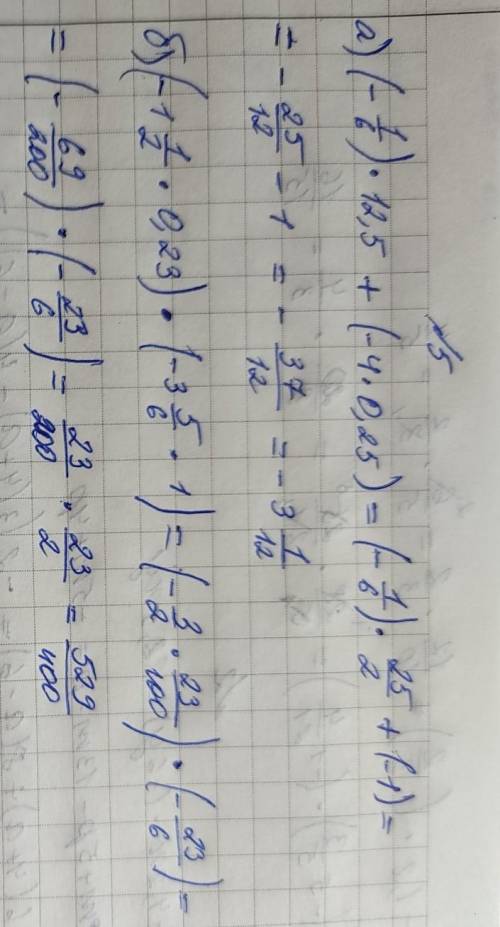 №5
а) (-1/6) · 12,5 + (-4 · 0,25) = (-1/6) · 25/2 + (-1) =
= - 25/12 - 1 = - 37/12 = - 3 1/12
б) (-1 1/2 · 0,23) · (-3 5/6 · 1) = (-3/2 · 23/100) · (-23/6) =
= (-69/200) · (-23/6) = 23/200 · 23/2 = 529/400